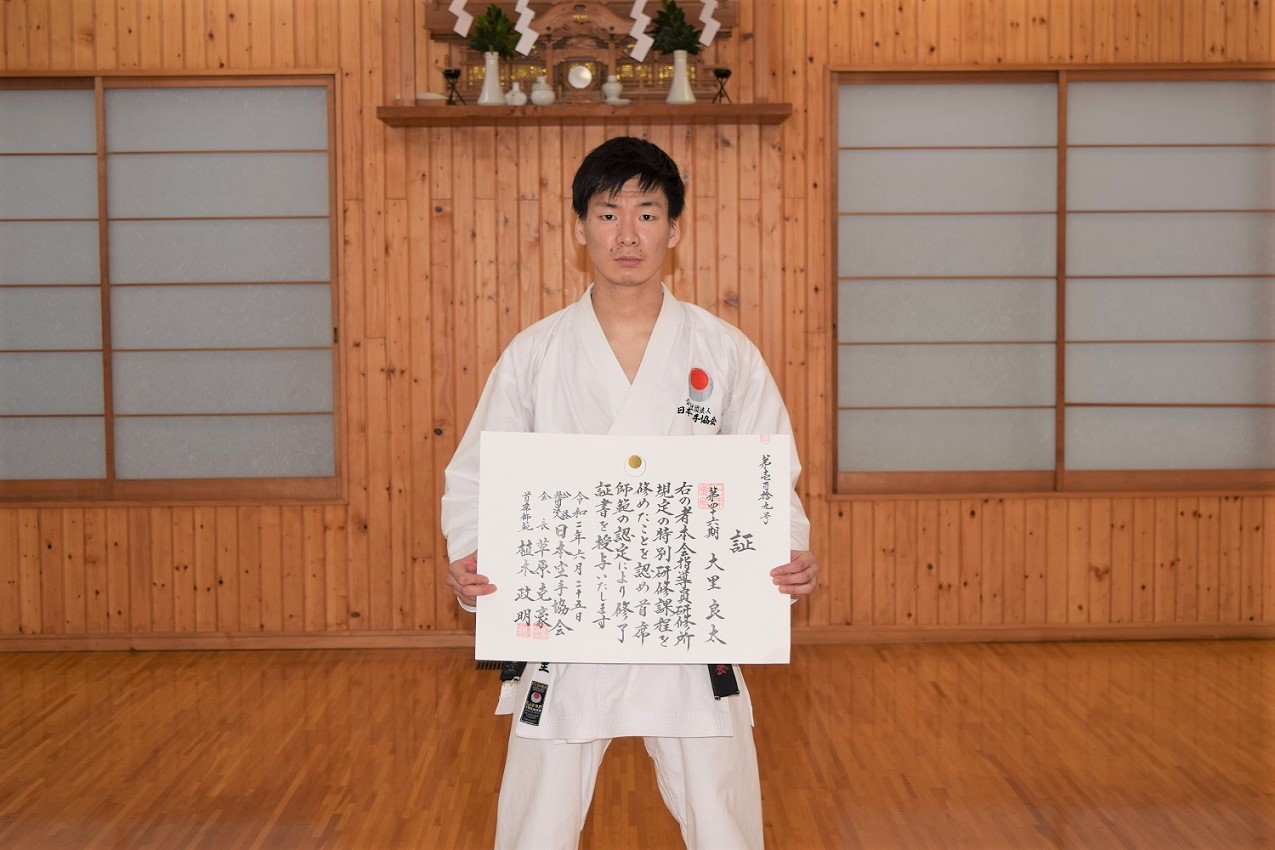 第壱百拾九号
証
第四十六期 大里良太
右の者本会指導員研修所
規定の特別研修課程を
修めたことを認め首席
師範の認定により修了
証書を授与いたします
令和二年六月二十五日
日本空手協会
会長 草原克豪
首席師範 植木政明
日本空手協会